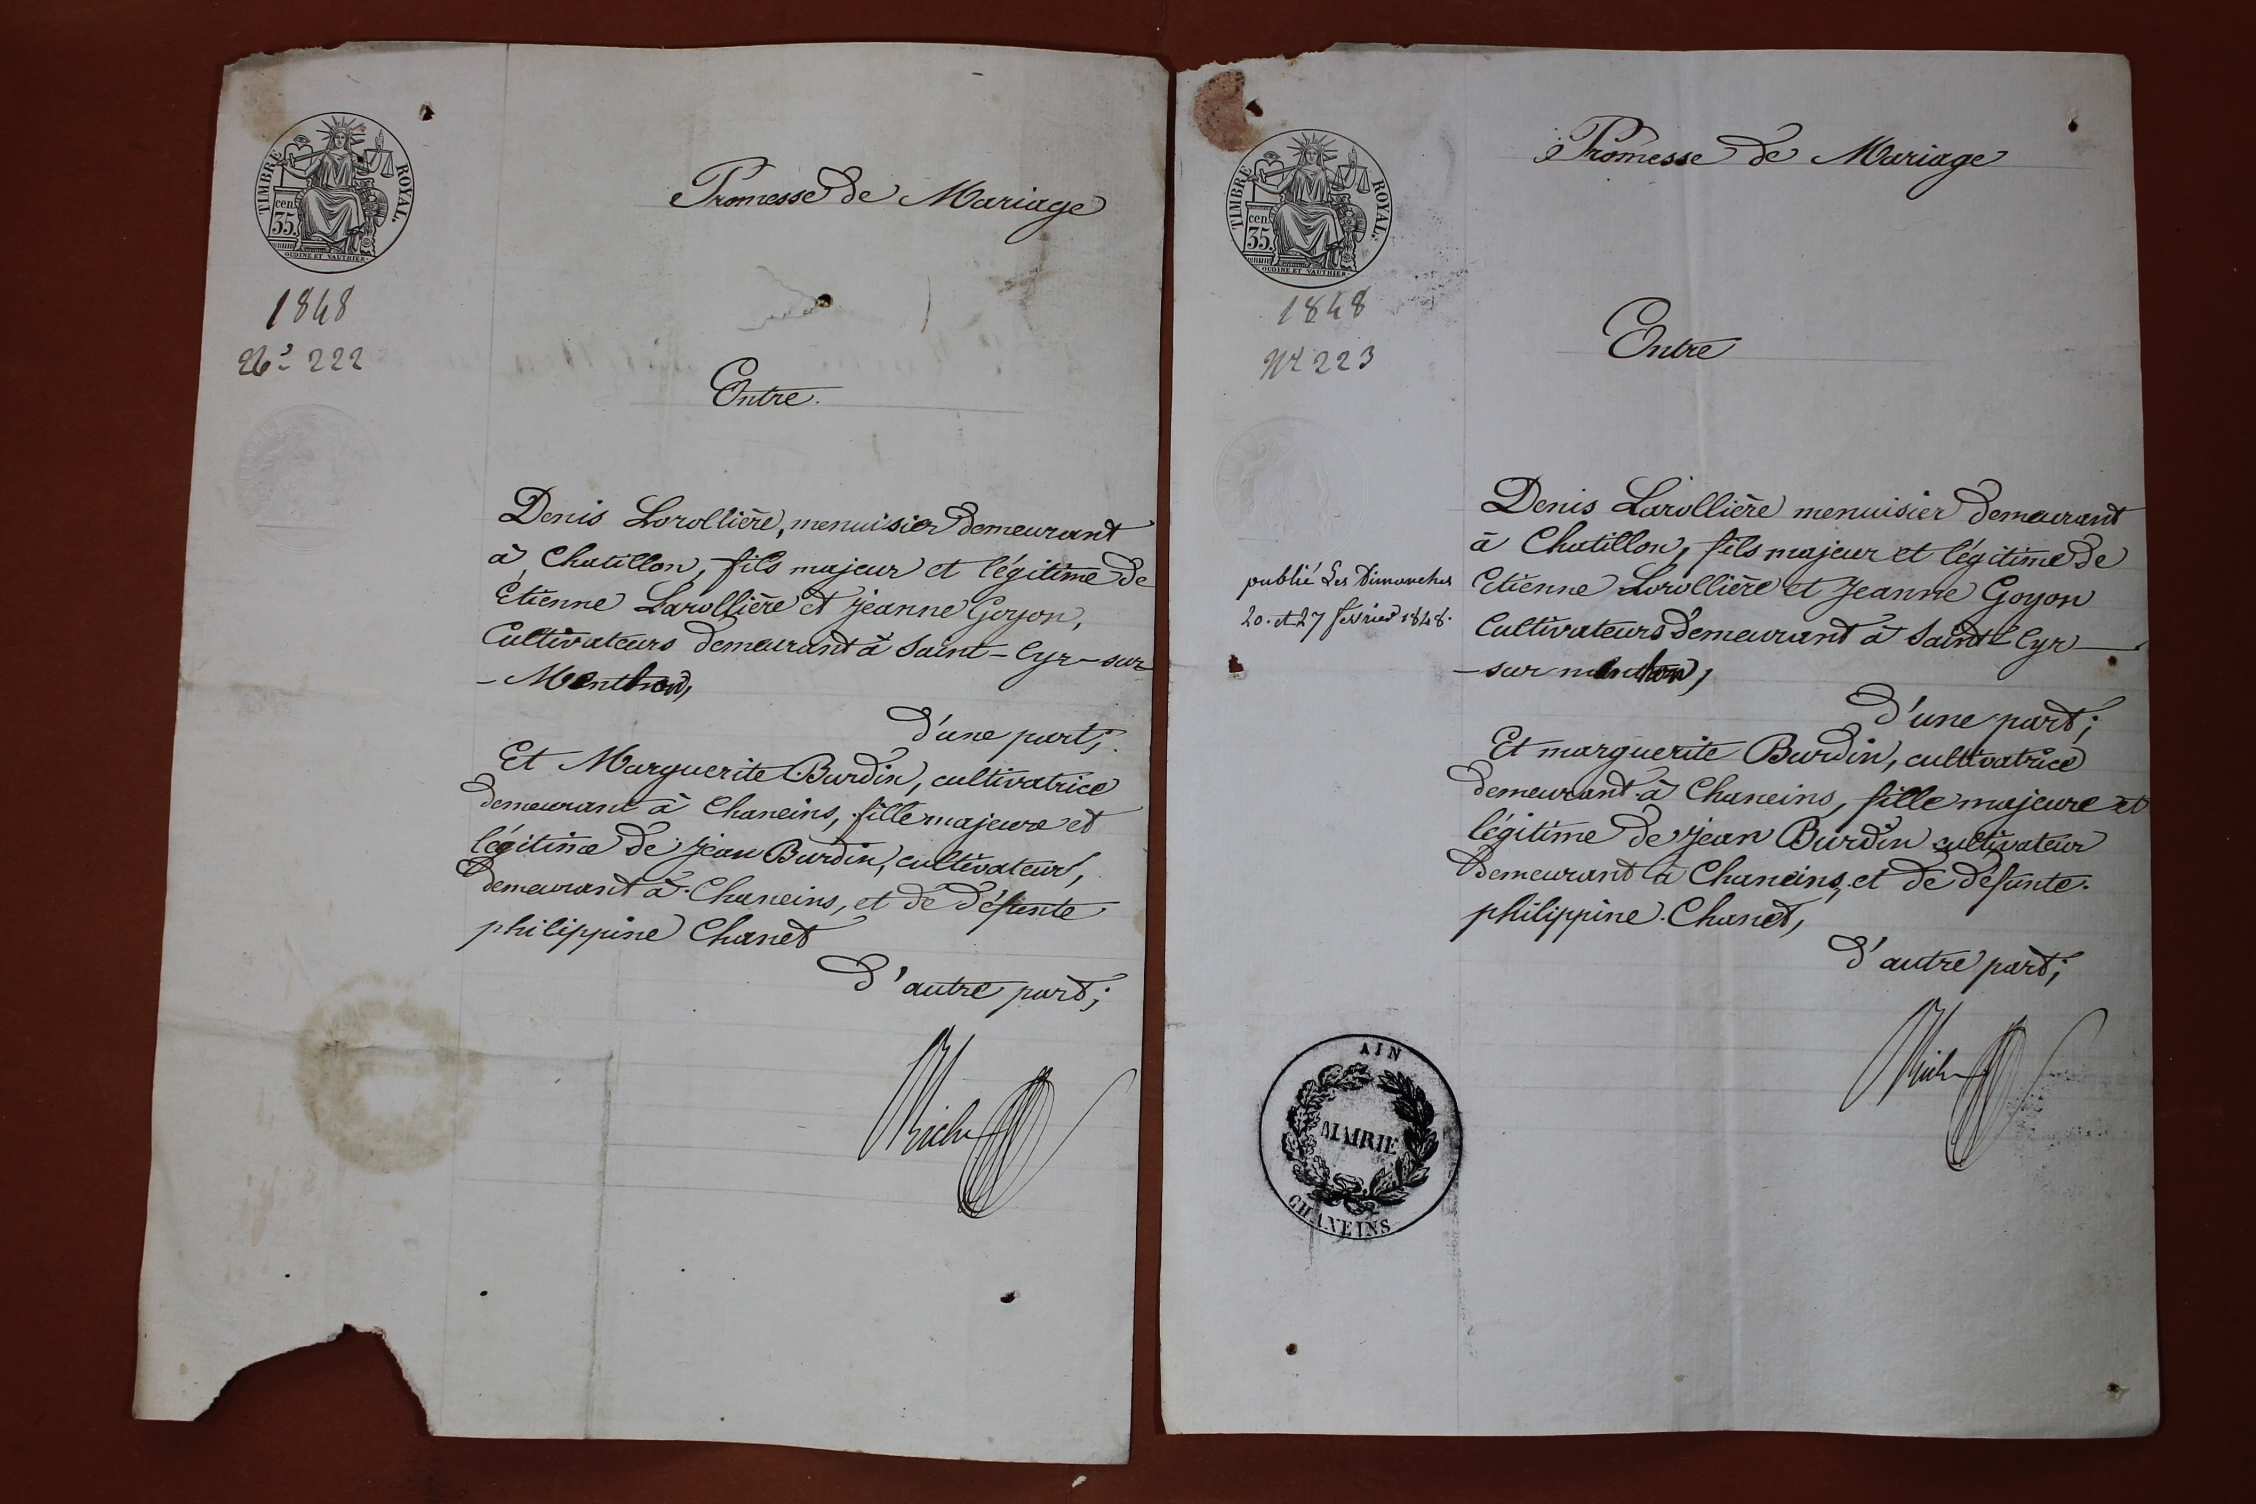 TIMBRE ROYAL.
cen.
35.
OUDINE ET VAUTHIER.
1848
Nº 222
Promesse de Mariage
Entre.
Denis Lorollière, menuisier demeurant
à Chatillon, fils majeur et légitime de
Etienne Larollière et jeanne Goyon,
Cultivateurs demeurant à Saint-Cyr-sur
-Menthon,
d'une part;
Et Marguerite Burdin, cultivatrice
demeurant à Chaneins, fille majeure et
légitime de jean Burdin, cultivateur,
demeurant à Chaneins, et de défunte
philippine Chanet
d'autre part;
TIMBRE ROYAL.
cen.
35.
OUDINE ET VAUTHIER.
1848
Nº 223
Promesse de Mariage
Entre
Denis Larollière menuisier demeurant
à Chatillon, fils majeur et légitime de
Etienne Lorollière et jeanne Goyon
Cultivateurs demeurant à Saint Cyr
-sur menthon,
d'une part;
Et marguerite Burdin, cultivatrice
demeurant à Chaneins, fille majeure et
légitime de jean Burdin cultivateur
demeurant à Chaneins, et de défunte
philippine Chanet,
d'autre part;
publié Les Dimanches
20 et 27 février 1848.
AIN
MAIRIE
CHANEINS